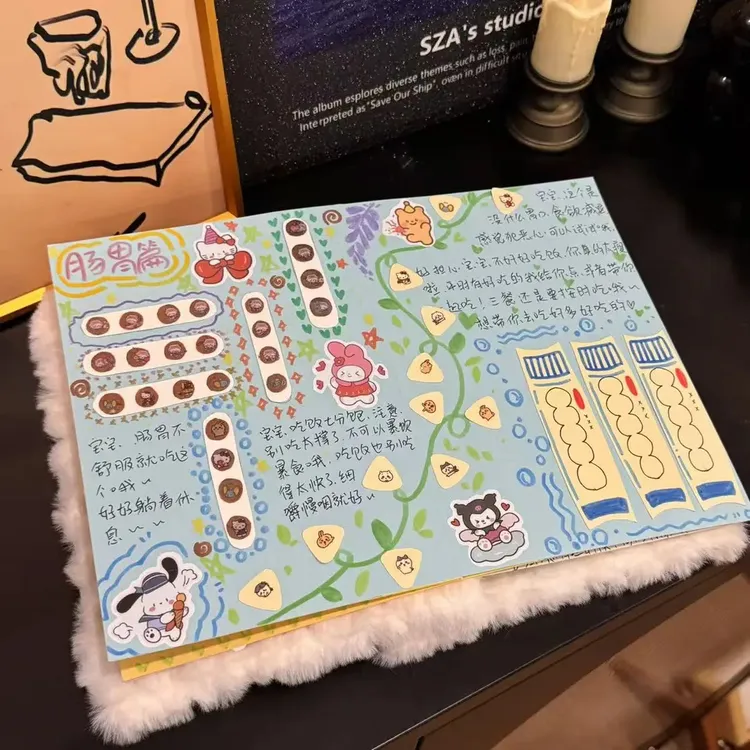 SZA's studio
The album explores diverse themes such as loss, pain
Interpreted as "Save Our Ship", even in difficult
肠胃篇
宝宝,肠胃不
舒服就吃这
个哦~
好好躺着休
息~~~
宝宝,吃饭七分饱,注意
别吃太撑了,不可以暴饮
暴食哦,吃饭也别吃
得太快了,细
嚼慢咽就好~
宝宝,这个是
没什么胃口,食欲
恶心,可以试试哦,
宝宝,不好好吃饭,你身
好吃的我给你点,或者带你
吃!三餐还是要按时吃哦~
想带你去吃好多好吃的